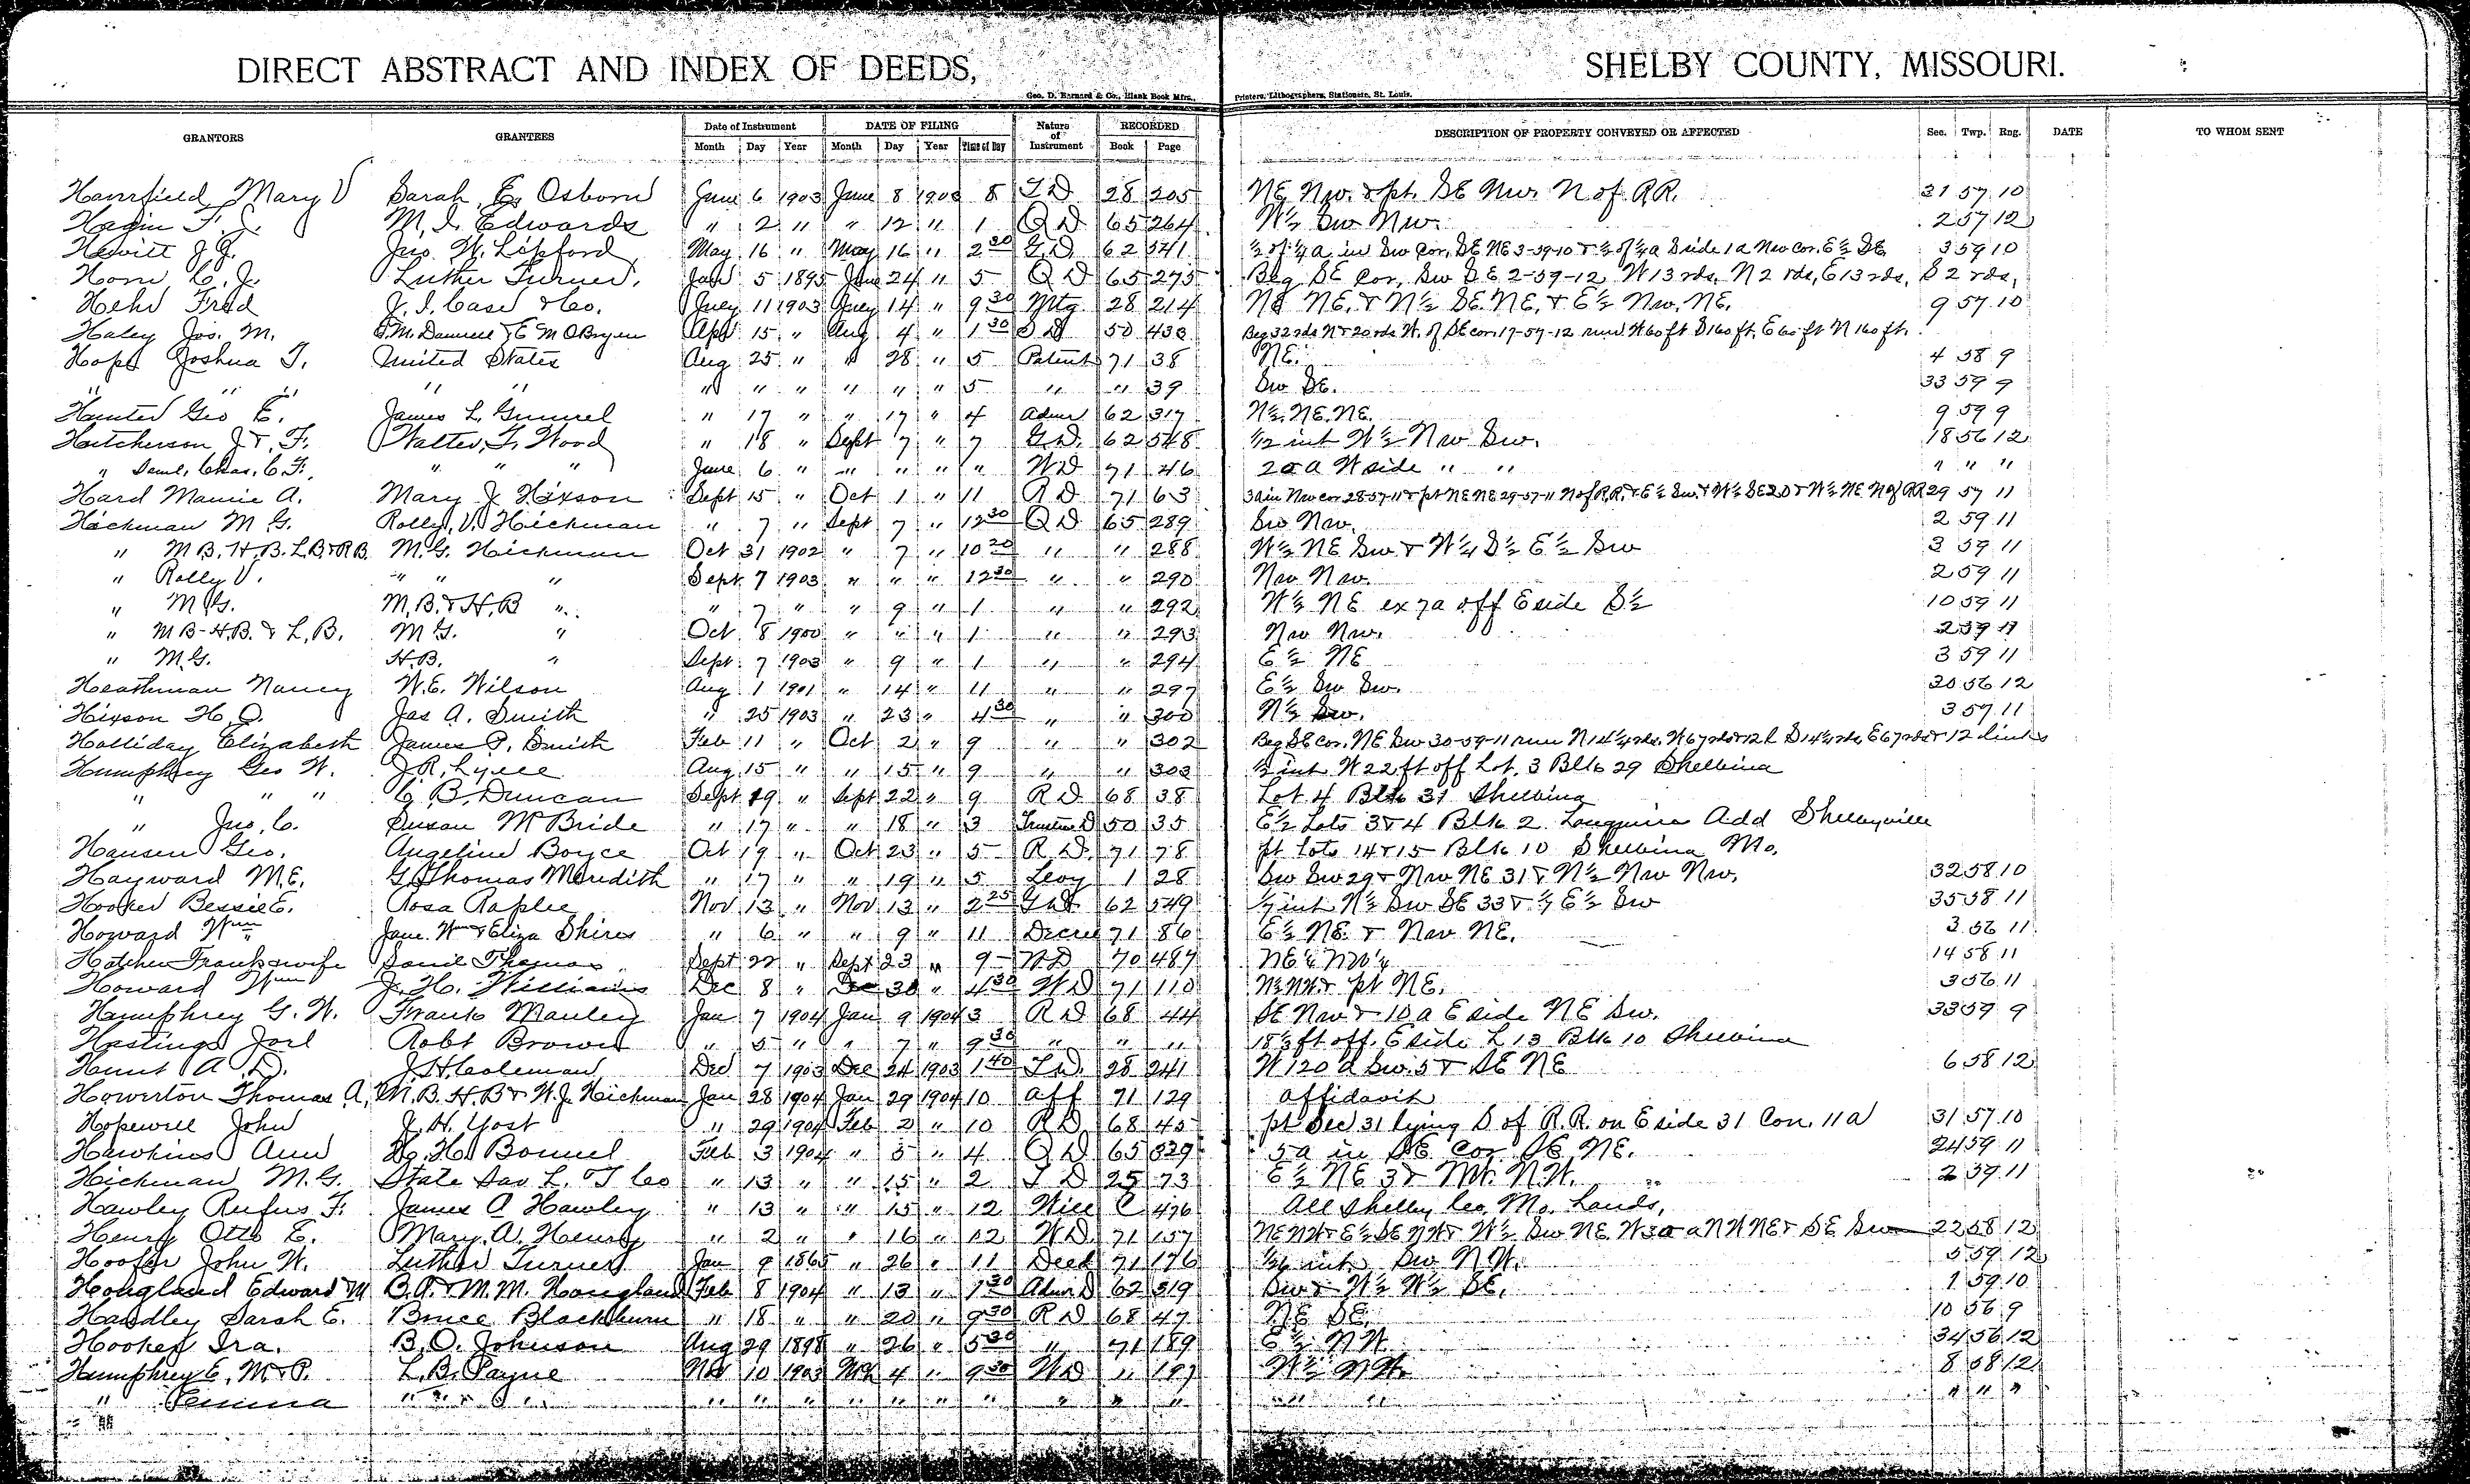 DIRECT ABSTRACT AND INDEX OF DEEDS, SHELBY COUNTY, MISSOURI.
Geo. D. Barnard & Co., Blank Book Mfrs., Printers, Lithographers, Stationers, St. Louis.
GRANTORS GRANTEES Date of Instrument DATE OF FILING Nature of Instrument RECORDED DESCRIPTION OF PROPERTY CONVEYED OR AFFECTED Sec. Twp. Rng. DATE TO WHOM SENT
Month Day Year Month Day Year Time of Day Book Page
Mary V Sarah E. Osborn June 6 1903 June 8 1903 8 T D 28 205 NE Nw. & pt. SE Nw. N of RR. 31 57 10
Hagin F. J. M. I. Edwards " 2 " " 12 " 1 Q D 65 264 W½ Sw Nw. 2 57 12
Hewitt J. G. Jno. W. Lipford May 16 " May 16 " 2 30 G. D. 62 541 ½ of ¼ a in Sw Cor. SE NE 3-59-10 & ½ of ¼ a S side 1 a Nw cor. E½ SE 3 59 10
Horn C. J. Luther Turner. Jan 5 1895 June 24 " 5 Q D 65 275 Beg SE Cor, Sw SE 2-59-12, W 13 rds, N 2 rds, E 13 rds, S 2 rds,
Hehr Fred J. I. Case & Co. July 11 1903 July 14 " 9 30 Mtg 28 214 NE NE. & N½ SE NE. & E½ Nw. NE. 9 57 10
Haley Jos. M. & E M OBryen Apr 15 " Aug 4 " 1 30 50 430 Beg 32 rds N & 20 rds W. of SE cor. 17-57-12 run W 60 ft S 160 ft, E 60 ft N 160 ft.
Hope Joshua T. United States Aug 25 " " 28 " 5 Patent 71 38 NE. 4 58 9
" " " " " " " " " " " 5 " " 39 Sw SE. 33 59 9
Hunter Geo E. James L. Gunnel " 17 " " 17 " 4 Admr 62 317 N½ NE NE. 9 59 9
Hutcherson J. T. F. Walter T. Wood " 18 " Sept 7 " 7 G D. 62 548 1/12 int W½ Nw Sw. 18 56 12
" Saml, Chas, C. F. " " " June 6 " " " " " WD 71 46 20 a W side " " " " "
Hard Mamie A. Mary J. Hixson Sept 15 " Oct 1 " 11 R D 71 63 3 a in Nw cor 28-57-11 & pt NE NE 29-57-11 N of R.R. & E½ Sw. & W½ SE 20 & W½ NE N of RR 29 57 11
Hickman M. G. Rolly V. Hickman " 7 " Sept 7 " 12 30 Q D 65 289 Sw Nw. 2 59 11
" M B. H. B. L B & R B. M. G. Hickman Oct 31 1902 " 7 " 10 20 " " 288 W½ NE Sw & W¼ S½ E½ Sw 3 59 11
" Rolly V. " " " Sept 7 1903 " " " 12 30 " " 290 Nw Nw. 2 59 11
" M. G. M, B. & H, B " " 7 " " 9 " 1 " " 292 W½ NE ex 7 a off E side S½ 10 59 11
" M B - H. B. & L, B. M G. " Oct 8 1900 " " " 1 " " 293 Nw Nw. 2 59 11
" M. G. H. B. " Sept 7 1903 " 9 " 1 " " 294 E½ NE 3 59 11
Heathman Nancy W. E. Wilson Aug 1 1901 " 14 " 11 " " 297 E½ Sw Sw. 20 56 12
Hixson H. O. Jas A. Smith " 25 1903 " 23 " 4 30 " " 300 N½ Sw. 3 57 11
Holliday Elizabeth James P. Smith Feb 11 " Oct 2 " 9 " " 302 Beg SE Cor. NE Sw 30-59-11 run N 14¼ rds. W 67 rds & 12 l S 14¼ rds E 67 rds & 12 links
Humphrey Geo W. J R. Lyell Aug 15 " " 15 " 9 " " 303 ½ int W 22 ft off Lot 3 Blk 29 Shelbina
" " " C. B. Duncan Sept 19 " Sept 22 " 9 R D 68 38 Lot 4 Blk 31 Shelbina
" Jno, C. Susan McBride " 17 " " 18 " 3 Trustee D 50 35 E½ Lots 3 & 4 Blk 2. Add Shelbyville
Hansen Geo. Angeline Boyce Oct 19 " Oct 23 " 5 R D. 71 78 pt lots 14 & 15 Blk 10 Shelbina Mo.
Hayward M. E. G. Thomas Meredith " 17 " " 19 " 5 Levy 1 28 Sw Sw 29 & Nw NE 31 & N½ Nw Nw. 32 58 10
Hooker Bessie E. Rosa Raplee Nov 13 " Nov 13 " 2 25 62 549 1/7 int N½ Sw SE 33 & 1/7 E½ Sw 35 58 11
Howard Wm Jane. Wm & Eliza Shires " 6 " " 9 " 11 Decree 71 86 E½ NE. & Nw NE. 3 56 11
Hatcher Frank & wife David Thomas Sept 22 " Sept 23 " 9 WD 70 487 NE¼ NW¼ 14 58 11
Howard Wm J. H. Williams Dec 8 " Dec 30 " 4 30 WD 71 110 N½ NW. & pt NE. 3 56 11
Humphrey G. W. Frank Manley Jan 7 1904 Jan 9 1904 3 R D 68 44 SE Nw & 10 a E side NE Sw. 33 59 9
Hastings Joel Robt Brown " 5 " " 7 " 9 30 " " " 18½ ft off E side L 13 Blk 10 Shelbina
Hunt A. D. J H Coleman Dec 7 1903 Dec 24 1903 1 40 T D. 28 241 W 120 a Sw. 5 & SE NE 6 58 12
Howerton Thomas A, M. B. H. B & W. J. Hickman Jan 28 1904 Jan 29 1904 10 aff 71 129 affidavit
Hopewell John J. H. Yost " 29 1904 Feb 2 " 10 R D 68 45 pt Sec 31 lying S of R.R. on E side 31 Con. 11 a 31 57 10
Hawkins Ann H. Bonnel Feb 3 1904 " 5 " 4 Q D 65 329 5 a in SE Cor SE NE. 24 59 11
Hickman M. G. State Sav L. T Co " 13 " " 15 " 2 T D 25 73 E½ NE 3 & NW. N.W. 2 59 11
Hawley Rufus F. James A Hawley " 13 " " 15 " 12 Will C 476 All Shelby Co, Mo. Lands,
Henry Otto E. Mary A. Henry " 2 " " 16 " 12 WD 71 157 NE NW & E½ SE NW & W½ Sw NE. W 30 a NW NE & SE Sw 22 58 12
Hoofer John W. Luther Turner Jan 9 1865 " 26 " 11 Deed 71 176 int Sw N.W. 5 59 12
Hougland Edward M B. A. & M. M. Hougland Feb 8 1904 " 13 " 1 30 Admr D 62 319 Sw & W½ W½ SE. 1 59 10
Handley Sarah E. Bruce Blackburn " 18 " " 20 " 9 30 R D 68 47 NE SE. 10 56 9
Hooker Ira. B. O. Johnson Aug 29 1898 " 26 " 5 30 " 71 189 E½ NW 34 56 12
Humphrey E, M & P. L. B. Payne Nov 10 1903 Mch 4 " 9 30 WD " 197 W½ NW. 8 58 12
" " " " " " " " " " " " " " " " " " "